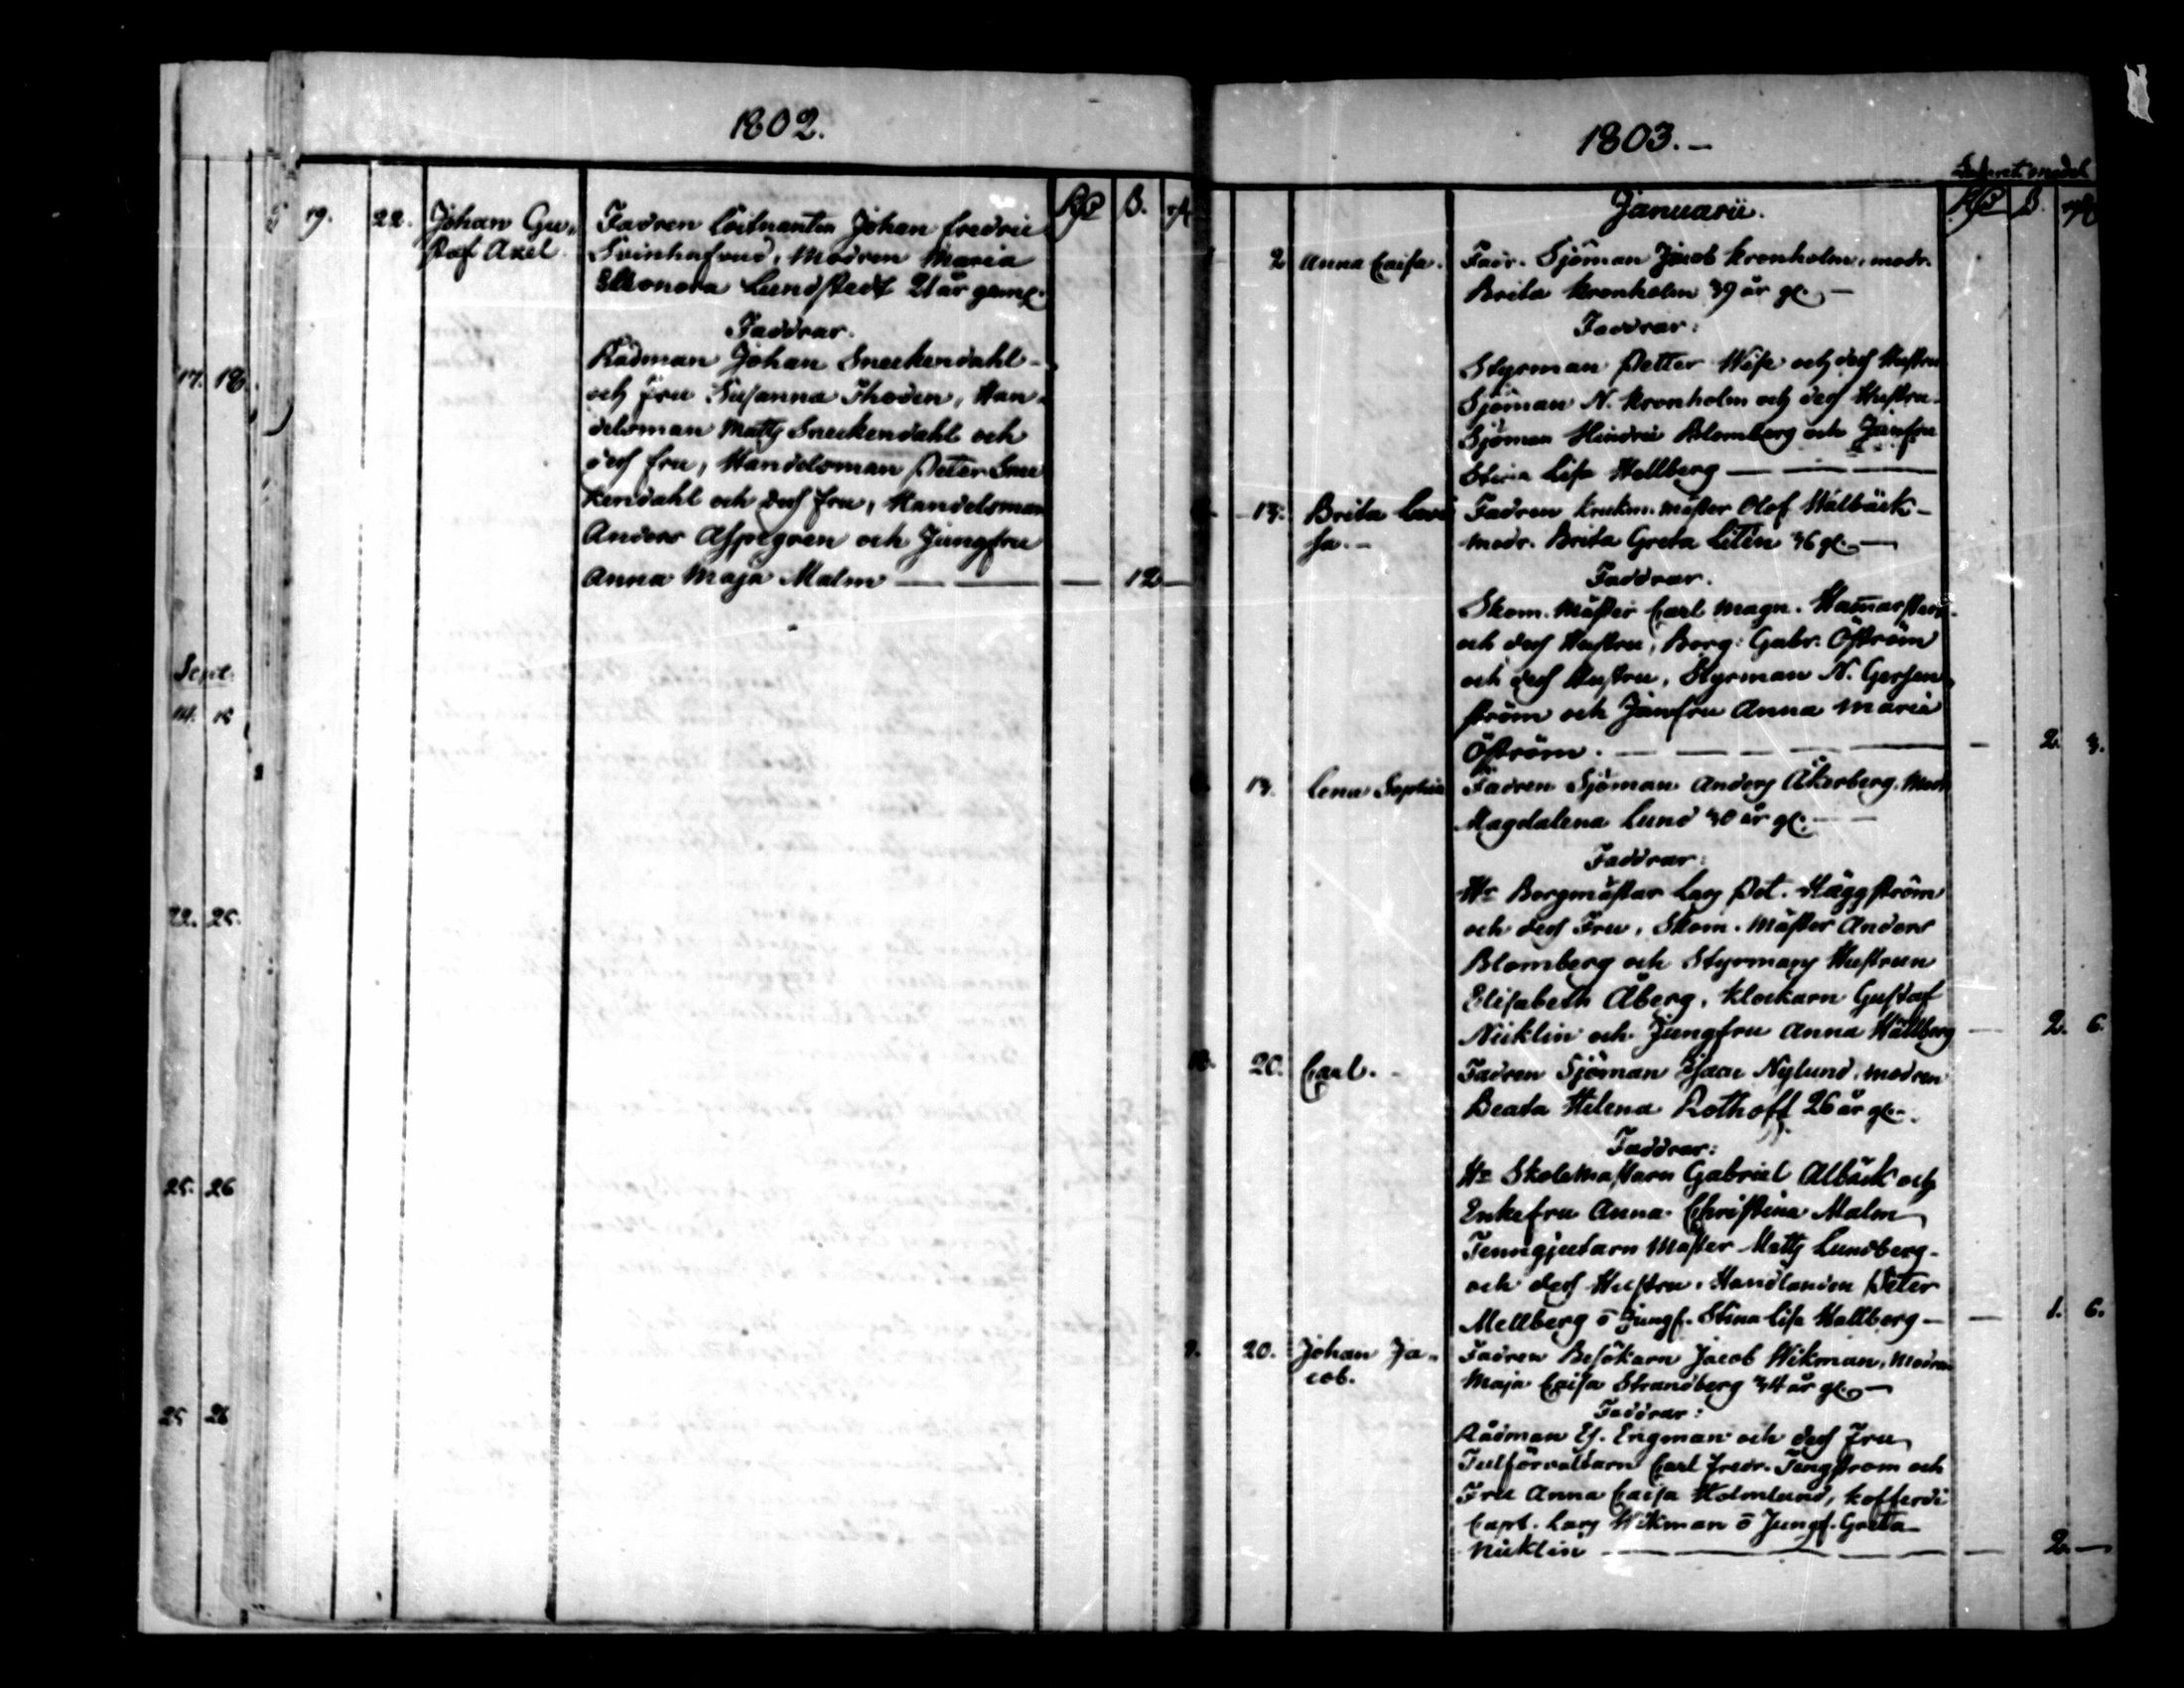 17. 18.
Sept.
14. 15
22. 25.
25. 26
25 26
1802.
19. 22. Johan Gu„ Fadren Löitnanten Johan Fredric
staf Axel. Svinhufvud, Modren Maria
Elleonora Lundstedt 21 år gamel.
Faddrar.
Rådman Johan Sneckendahl –
och Fru Susanna Thoden, Han„
delsman Matts Sneckendahl och
dess fru, Handelsman Peter Snec
kendahl och dess fru, Handelsman
Anders Aspegren och Jungfru
Anna Maja Malm — — — 12 —
1803. –
Januarii.
2 Anna Caisa. Fadr. Sjöman Jacob Kronholm, modr.
Brita Kronholm 39 år gl. –
Faddrar:
Styrman Petter Wise och dess Hustru
Sjöman N. Kronholm och dess Hustru.
Sjöman Hindric Blomberg och Jumfru
Stina Lisa Hellberg — — —
13. Brita Lovi Fadren Krukm. mäster Olof Walbäck –
sa. – modr. Brita Greta Litin 36 gl. —
Faddrar.
Skom. Mäster Carl Magn. Hamarsten
och dess Hustru, Borg: Gabr. Öström
och dess Hustru, Styrman N. Gersen„
ström och Jumfru Anna Maria
Öström. — — — — 2. 3.
13. Lena Sophia Fadren Sjöman Anders Åkerberg. Modr
Magdalena Lund 30 år gl. — —
Faddrar:
Hr Borgmästar Lars Pet. Häggström
och dess Fru, Skom. Mäster Anders
Blomberg och Styrmans Hustrun
Elisabeth Åberg, Klockarn Gustaf
Nicklin och Jungfru Anna Hällberg — 2. 6.
20. Carl. – Fadren Sjöman Isaac Nylund, modren
Beata Helena Rothoff 26 år gl.
Faddrar:
Hr Skolemästarn Gabriel Albäck och
Enkefru Anna Christina Malm
Tenngjutarn Mäster Matts Lundberg –
och dess Hustru, Handlanden Peter
Mellberg o Jungf. Stina Lisa Hallberg — — 1. 6.
20. Johan Ja„ Fadren Besökarn Jacob Wikman, Modren
cob. Maja Caisa Strandberg 34 år gl. —
Faddrar:
Rådman Es. Engman och dess Fru
Tulförvaltarn Carl Fredr. Tengström och
Fru Anna Caisa Holmlund, Kofferdi
Capt. Lars Wikman o Jungf. Greta
Nicklin — — — 2. —